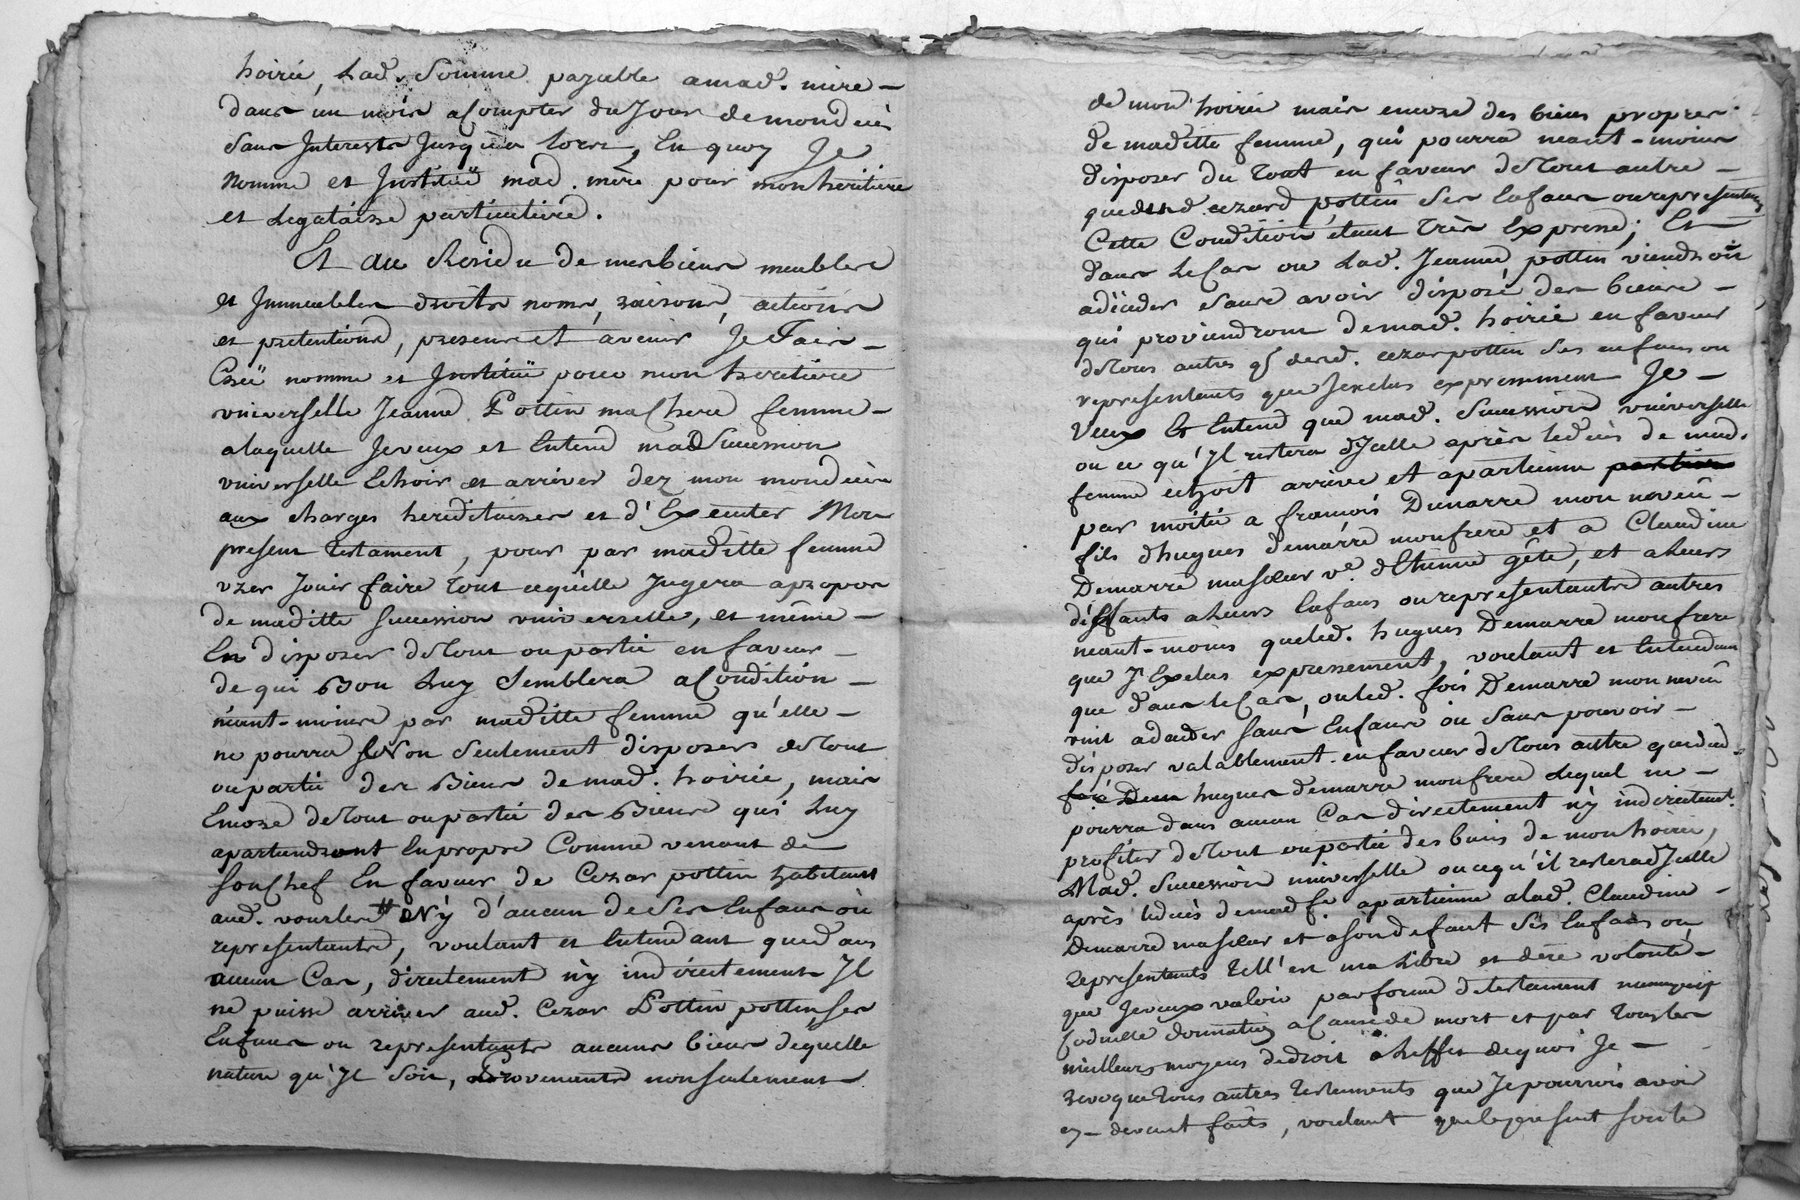 hoirie, Lad. Somme payable a mad. mère –
dans un mois a Compter du Jour de mon décès
Sans Interests Jusqu'à Lors, En quoy Je
nomme et Institüe mad. mère pour mon héritiere
et Legataire particuliere.
Et au Residu de mes biens meubles
et Immeubles droits noms, raisons, actions
et pretentions, presents et avenir Je Fais –
Créé nomme et Institüe pour mon heritiere
universelle Jeanne Pottin ma Chere femme –
a laquelle Je veux et Entend mad Succession
universelle Echoir et arriver dez mon mon décès
aux charges hereditaires et d'Executer Mon
present testament, pour par maditte femme
uzer Jouir faire tout ce qu'elle Jugera a propos
de maditte Succession universelle, et même –
En disposer de tout ou partie en faveur –
de qui Bon Luy Semblera a Condition –
néant-moins par maditte femme qu'elle –
ne pourra Non Seulement disposer de tout
ou partie des Biens de mad. hoirie, mais
Encore de tout ou partie des Biens qui Luy
apartiendront En propre Comme venant de
Son Chef En faveur de Cezar pottin habitant
aud. vourles Ny d'aucun de Ses Enfans ou
representants, voulant et Entendant que d ans
aucun Cas, directement n'y indirectement Il
ne puisse arriver aud. Cezar Pottin pottin ses
Enfans ou representants aucuns biens de quelle
nature qu'Il Soit, Provenants non seulement
de mon hoirie mais encore des biens propres
de maditte femme, qui pourra neant-moins
disposer du tout en faveur de tout autre –
que dud cezard pottin Ses Enfans ou representans
Cette Condition etant très Expresse; Et
dans Le Cas ou Lad. Jeanne pottin viendroit
a déceder Sans avoir disposé des biens –
qui proviendront de mad. hoirie en faveur
de tous autres q. dud. cezar pottin Ses enfans ou
representants que J'exclus expressement Je –
Veux Et Entend que mad. Succession universelle
ou ce qu'Il restera d'Icelle après le décès de mad.
femme échoit arrive et apartienne
par moitié a françois Dumarre mon neveû –
fils d'hugues demarre mon frere et a Claudine
Demarre ma sœur ve. d'Etienne gête, et a Leurs
déffauts a Leurs Enfans ou representants autres
neant-moins que led. hugues Demarre mon frere
que J'Exclus expressement, voulant et Entendant
que dans le Cas, ou led. fois Demarre mon neveû
vint a deceder Sans Enfans ou Sans pouvoir –
disposer valablement en faveur de tous autre que dud. –
hugues demarre mon frere Lequel ne –
pourra dans aucun Cas directement n'y indirectement
profiter de tout ou partie des biens de mon hoirie,
Mad. Succession universelle ou ce qu'il restera d'Icelle
après le decès de mad fe. apartienne a lad. Claudine –
Demarre ma sœur et a son defaut Ses Enfans ou
representants Tell'est ma Libre et dere volonté –
que Je veux valoir par forme de testament
Codicille donnation a Cause de mort et par tous les
meilleurs moyens de droit a L'effet de quoi Je –
revoque tous autres testaments que Je pourrois avoir
cy-devant faits, voulant que le present sorte